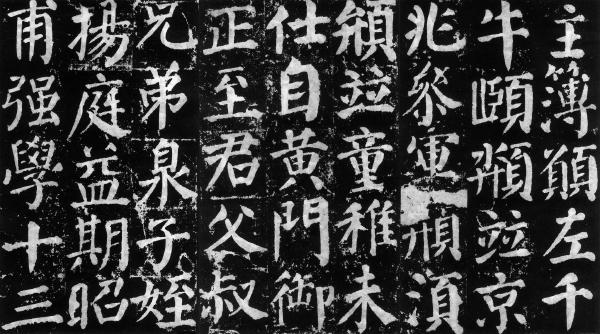 主簿願左千
牛頤竝京
兆參軍須
竝童稚未
仕自黃門御
正至君父叔
兄弟臮子姪
揚庭益期昭
甫强學十三